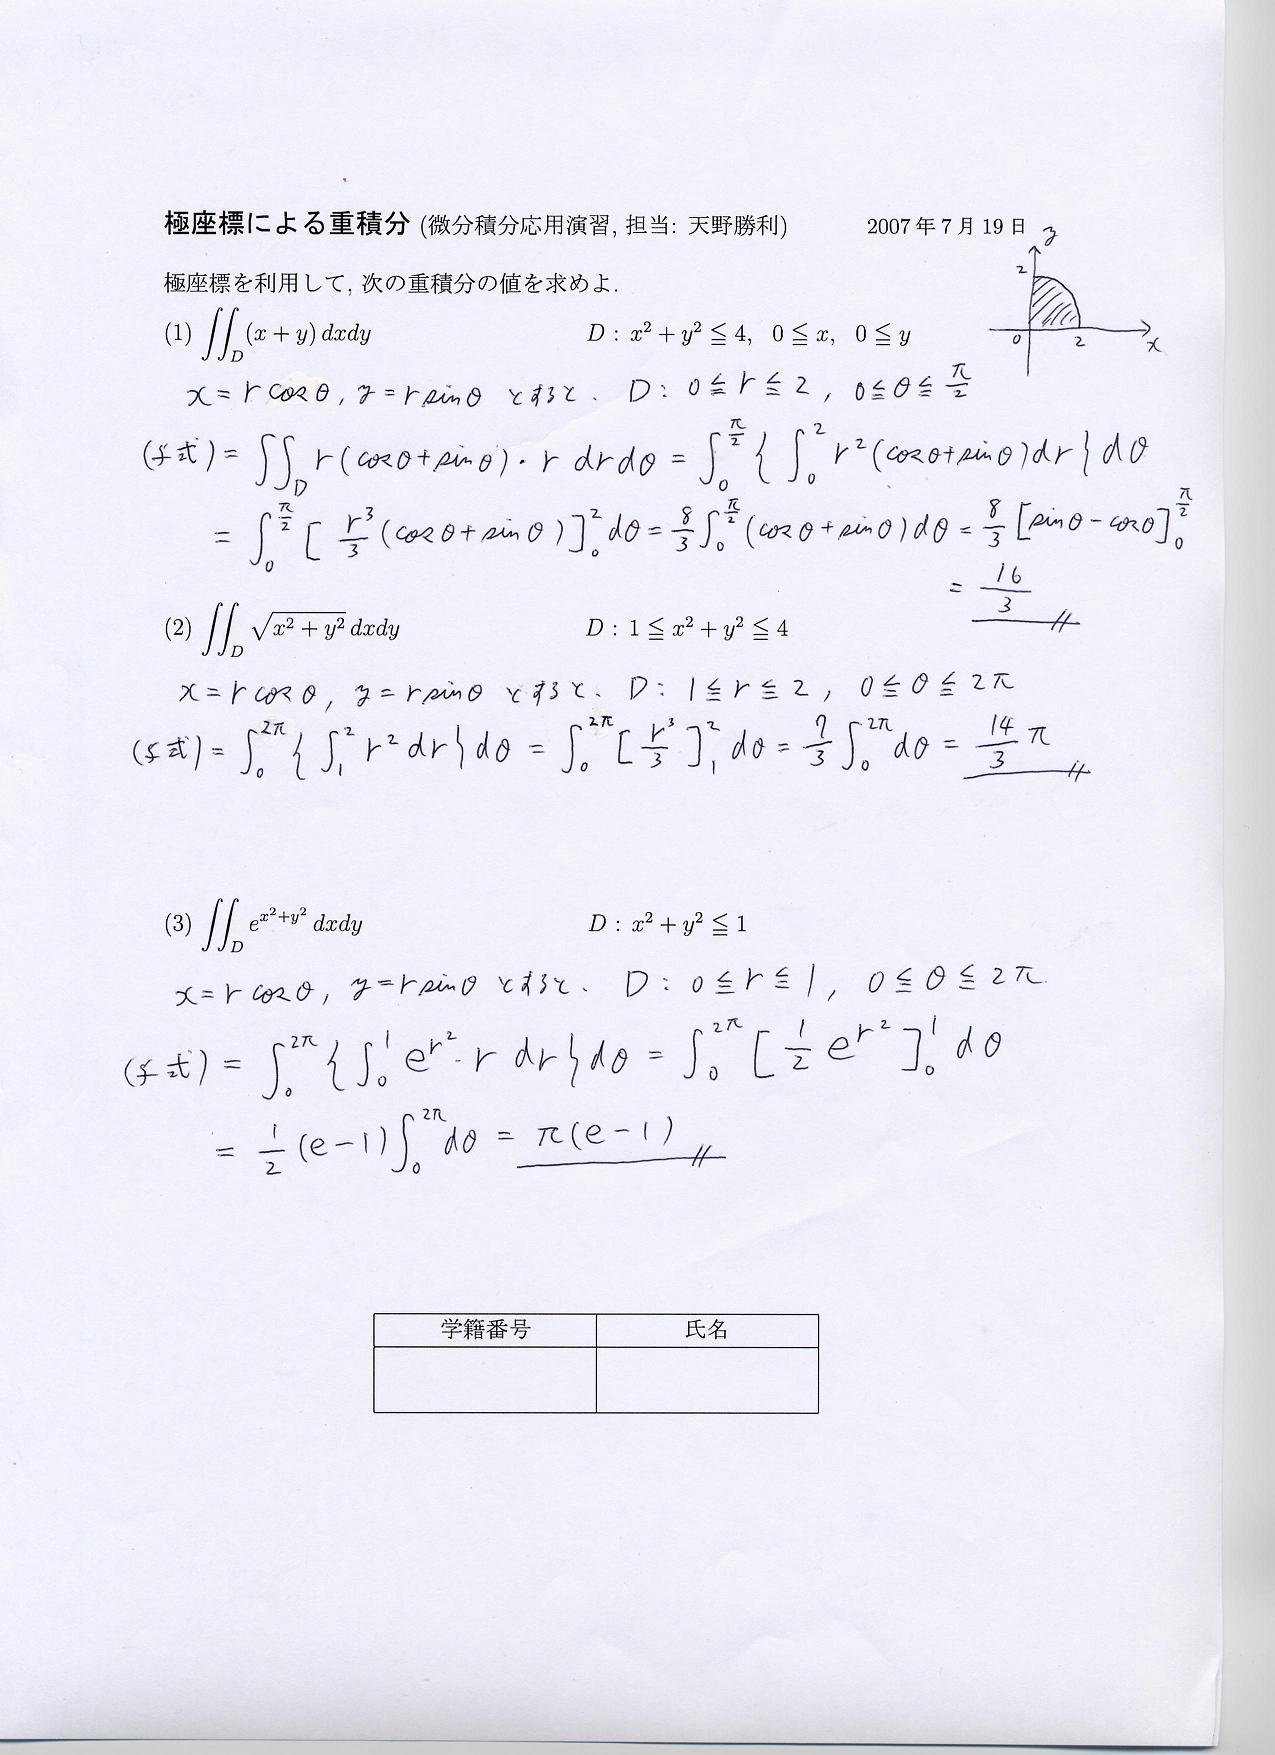 極座標による重積分 (微分積分応用演習, 担当: 天野勝利) 2007年7月19日
極座標を利用して, 次の重積分の値を求めよ.
(1) ∬_D (x + y) dxdy D : x² + y² ≦ 4, 0 ≦ x, 0 ≦ y
y
2
0 2 x
x = r cosθ, y = r sinθ とすると、 D: 0 ≦ r ≦ 2, 0 ≦ θ ≦ π/2
(与式) = ∬_D r(cosθ+sinθ)・r drdθ = ∫_0^{π/2} { ∫_0^2 r²(cosθ+sinθ)dr } dθ
= ∫_0^{π/2} [ r³/3 (cosθ+sinθ) ]_0^2 dθ = 8/3 ∫_0^{π/2} (cosθ+sinθ)dθ = 8/3 [sinθ-cosθ]_0^{π/2}
= 16/3
(2) ∬_D √(x² + y²) dxdy D : 1 ≦ x² + y² ≦ 4
x = r cosθ, y = r sinθ とすると、 D: 1 ≦ r ≦ 2, 0 ≦ θ ≦ 2π
(与式) = ∫_0^{2π} { ∫_1^2 r² dr } dθ = ∫_0^{2π} [ r³/3 ]_1^2 dθ = 7/3 ∫_0^{2π} dθ = 14/3 π
(3) ∬_D e^{x²+y²} dxdy D : x² + y² ≦ 1
x = r cosθ, y = r sinθ とすると、 D: 0 ≦ r ≦ 1, 0 ≦ θ ≦ 2π.
(与式) = ∫_0^{2π} { ∫_0^1 e^{r²}・r dr } dθ = ∫_0^{2π} [ 1/2 e^{r²} ]_0^1 dθ
= 1/2 (e-1) ∫_0^{2π} dθ = π(e-1)
学籍番号 氏名